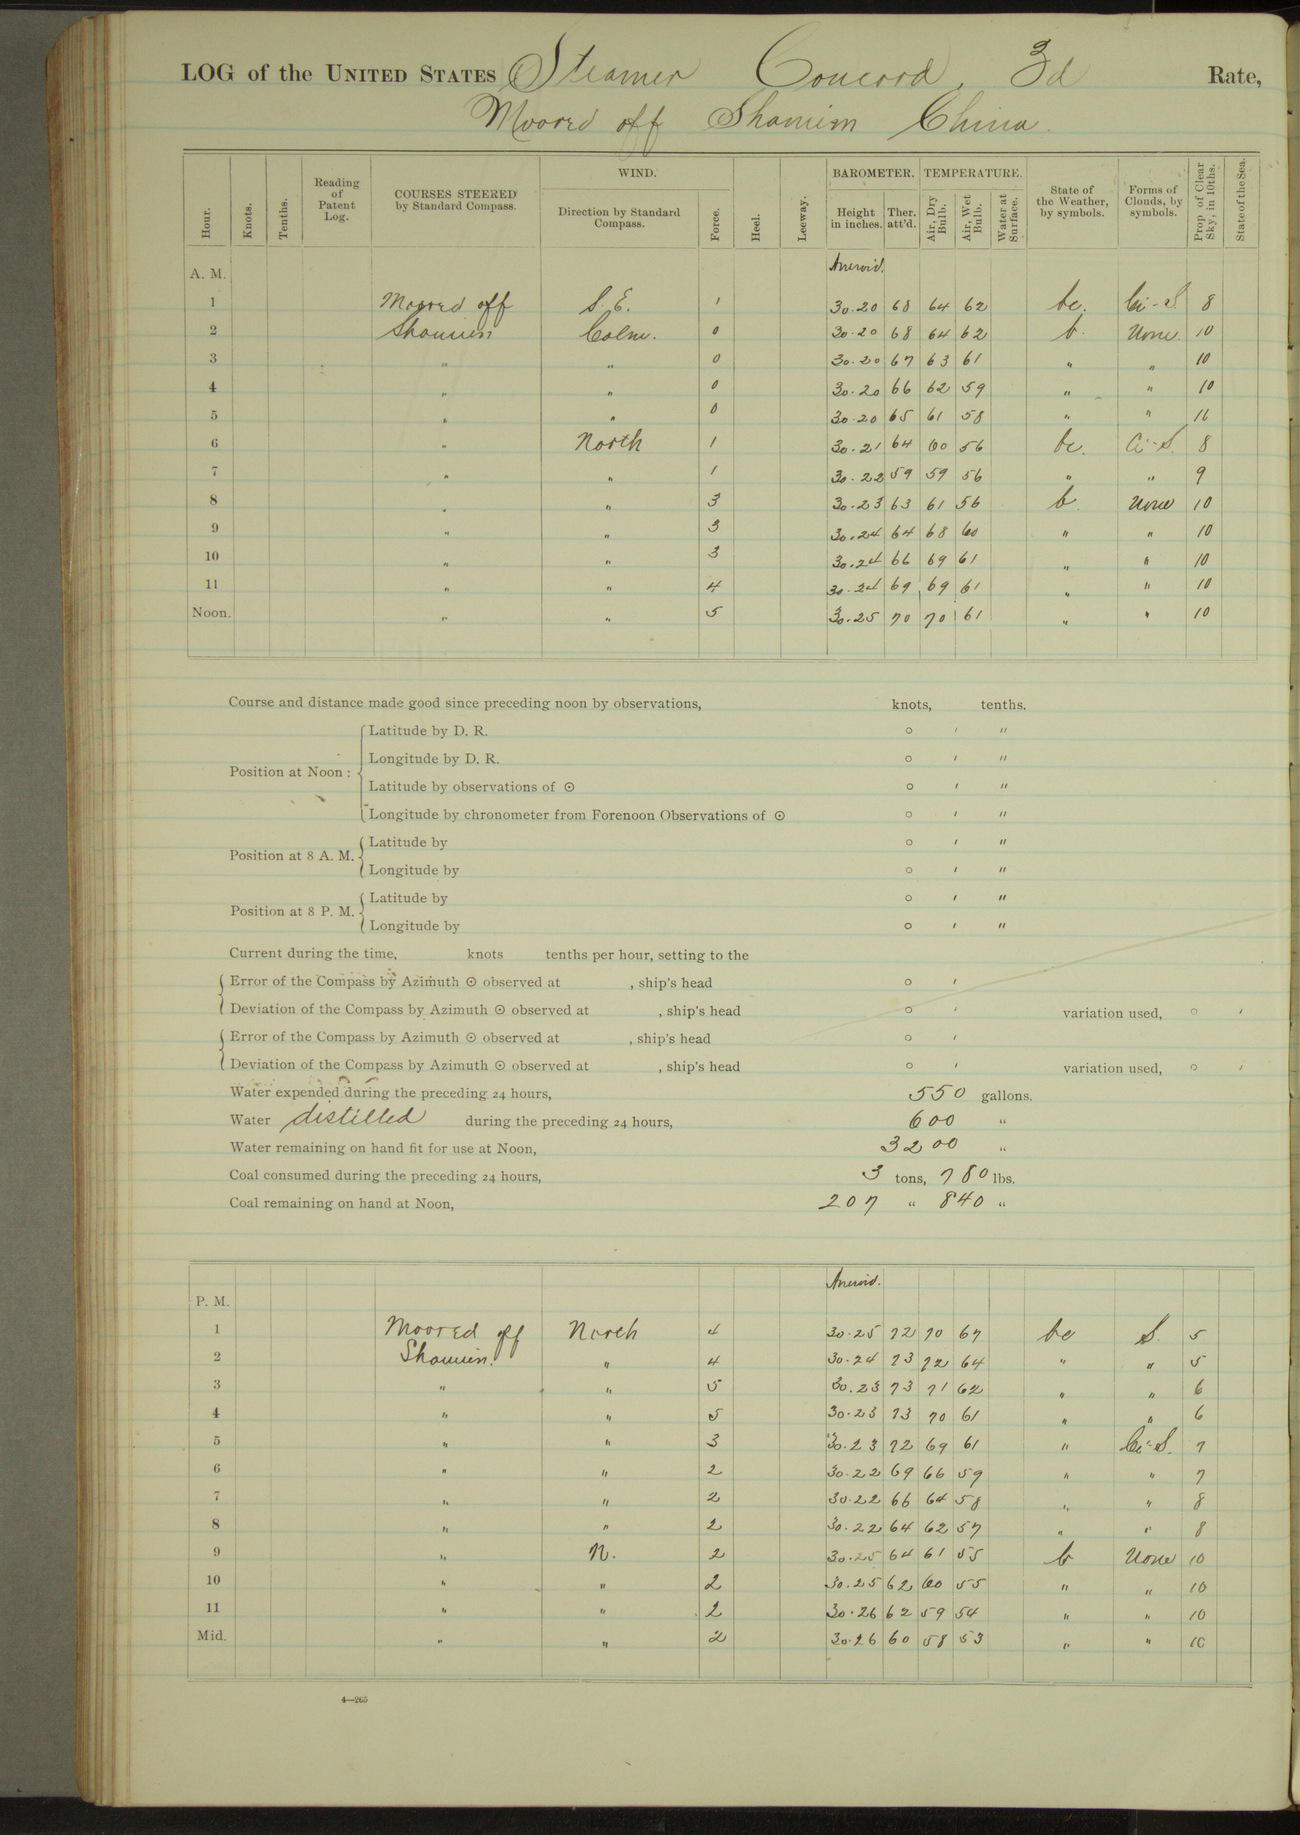 LOG of the UNITED STATES Steamer Concord, 3d Rate,
Moored off Shamien China.
Hour. Knots. Tenths. Reading of Patent Log. COURSES STEERED by Standard Compass. WIND. Direction by Standard Compass. Force. Heel. Leeway. BAROMETER. Height in inches. Ther. att'd. TEMPERATURE. Air, Dry Bulb. Air, Wet Bulb. Water at Surface. State of the Weather, by symbols. Forms of Clouds, by symbols. Prop. of Clear Sky, in 10ths. State of the Sea.
A. M. Aneroid.
1 Moored off S. E. 1 30.20 68 64 62 bc. Ci-S. 8
2 Shamien Calm. 0 30.20 68 64 62 b. None. 10
3 " " 0 30.20 67 63 61 " " 10
4 " " 0 30.20 66 62 59 " " 10
5 " " 0 30.20 65 61 58 " " 10
6 " North 1 30.21 64 60 56 bc. Ci-S. 8
7 " " 1 30.22 59 59 56 " " 9
8 " " 3 30.23 63 61 56 b None 10
9 " " 3 30.24 64 68 60 " " 10
10 " " 3 30.24 66 69 61 " " 10
11 " " 4 30.24 69 69 61 " " 10
Noon. " " 5 30.25 70 70 61 " " 10
Course and distance made good since preceding noon by observations, knots, tenths.
Position at Noon: Latitude by D. R. ° ′ ″
Longitude by D. R. ° ′ ″
Latitude by observations of ⊙ ° ′ ″
Longitude by chronometer from Forenoon Observations of ⊙ ° ′ ″
Position at 8 A. M. Latitude by ° ′ ″
Longitude by ° ′ ″
Position at 8 P. M. Latitude by ° ′ ″
Longitude by ° ′ ″
Current during the time, knots tenths per hour, setting to the
Error of the Compass by Azimuth ⊙ observed at , ship's head ° ′
Deviation of the Compass by Azimuth ⊙ observed at , ship's head ° ′ variation used, ° ′
Error of the Compass by Azimuth ⊙ observed at , ship's head ° ′
Deviation of the Compass by Azimuth ⊙ observed at , ship's head ° ′ variation used, ° ′
Water expended during the preceding 24 hours, 550 gallons.
Water distilled during the preceding 24 hours, 600 "
Water remaining on hand fit for use at Noon, 3200 "
Coal consumed during the preceding 24 hours, 3 tons, 780 lbs.
Coal remaining on hand at Noon, 207 " 840 "
P. M. Aneroid.
1 Moored off North 4 30.25 72 70 67 bc S. 5
2 Shamien. " 4 30.24 73 72 64 " " 5
3 " " 5 30.23 73 71 62 " " 6
4 " " 5 30.23 73 70 61 " " 6
5 " " 3 30.23 72 69 61 " Ci-S. 7
6 " " 2 30.22 69 66 59 " " 7
7 " " 2 30.22 66 64 58 " " 8
8 " " 2 30.22 64 62 57 " " 8
9 " N. 2 30.25 64 61 55 b None 10
10 " " 2 30.25 62 60 55 " " 10
11 " " 2 30.26 62 59 54 " " 10
Mid. " " 2 30.26 60 58 53 " " 10
4—265